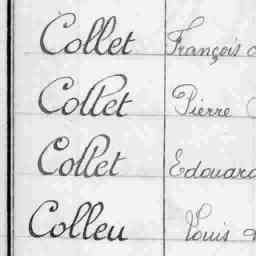 Collet François
Collet Pierre
Collet Edouard
Colleu Louis